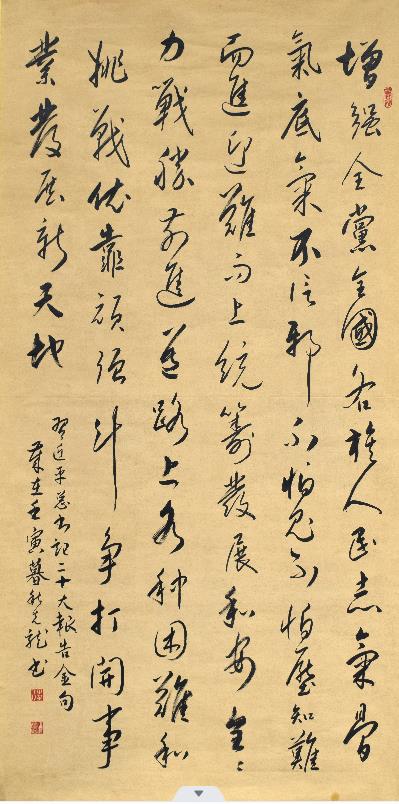 增强全黨全國各族人民志氣骨
氣底氣不信邪不怕鬼不怕壓知難
而進迎難而上統籌發展和安全〻
力戰勝前進道路上各种困難和
挑戰依靠頑强斗争打開事
業發展新天地
習近平总书記二十大報告金句
歲在壬寅暮秋光龍书